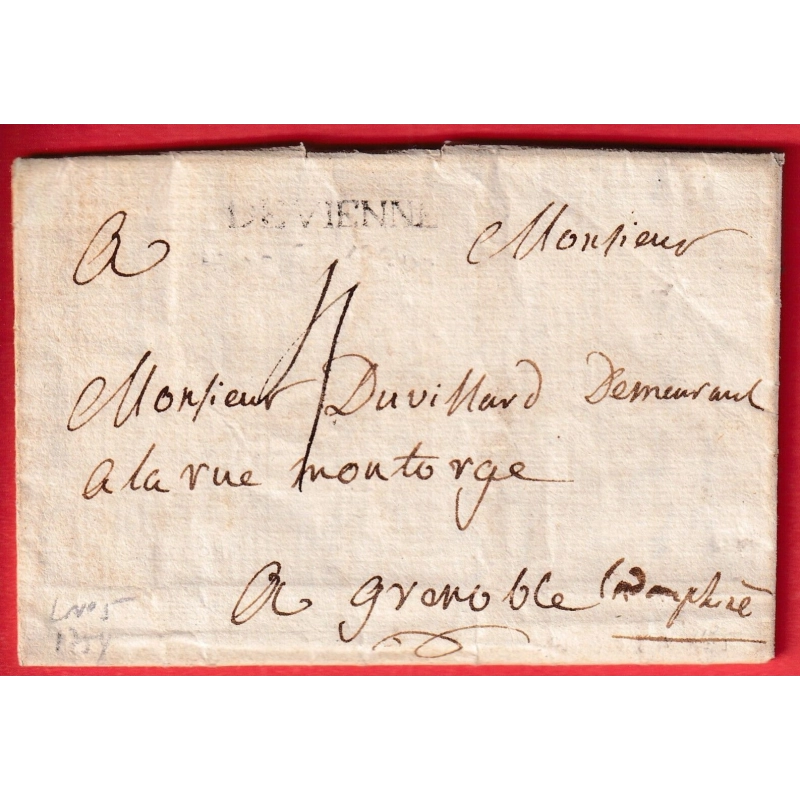 DE VIENNE
A Monsieur
4
Monsieur Duvillard Demeurant
a la rue montorge
A grenoble
L No 5